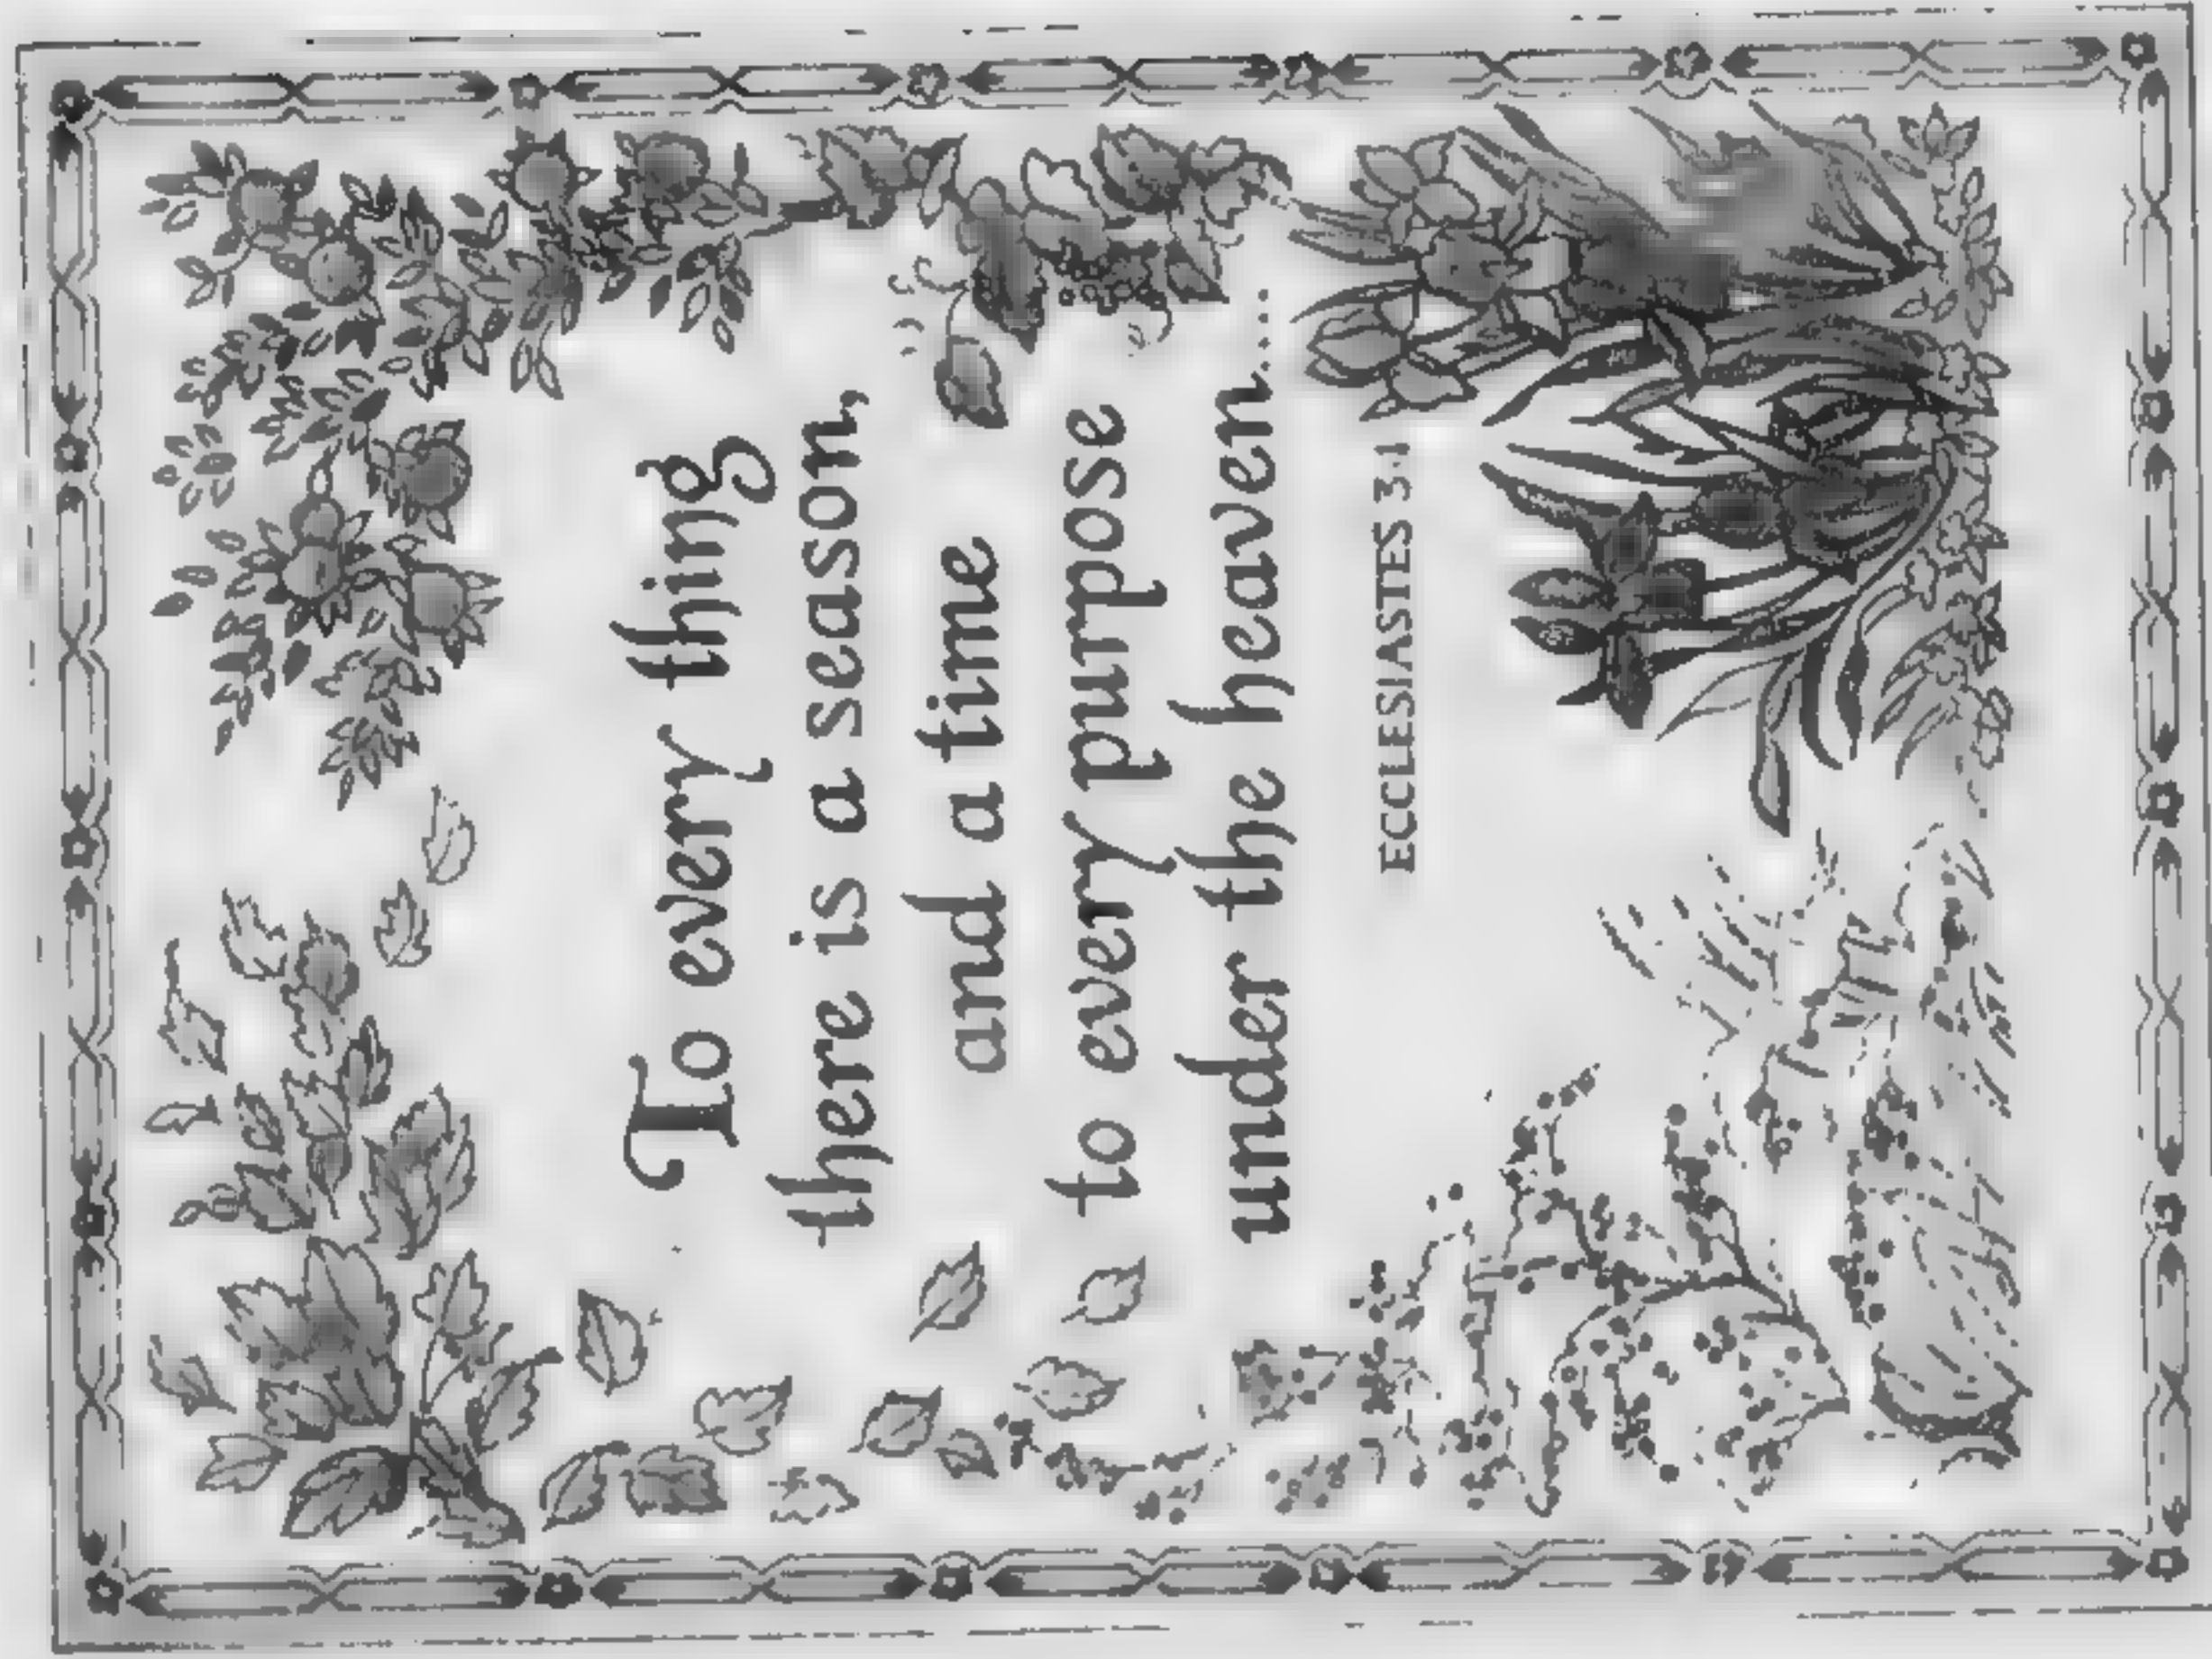 To every thing
there is a season,
and a time
to every purpose
under the heaven....
ECCLESIASTES 3·1